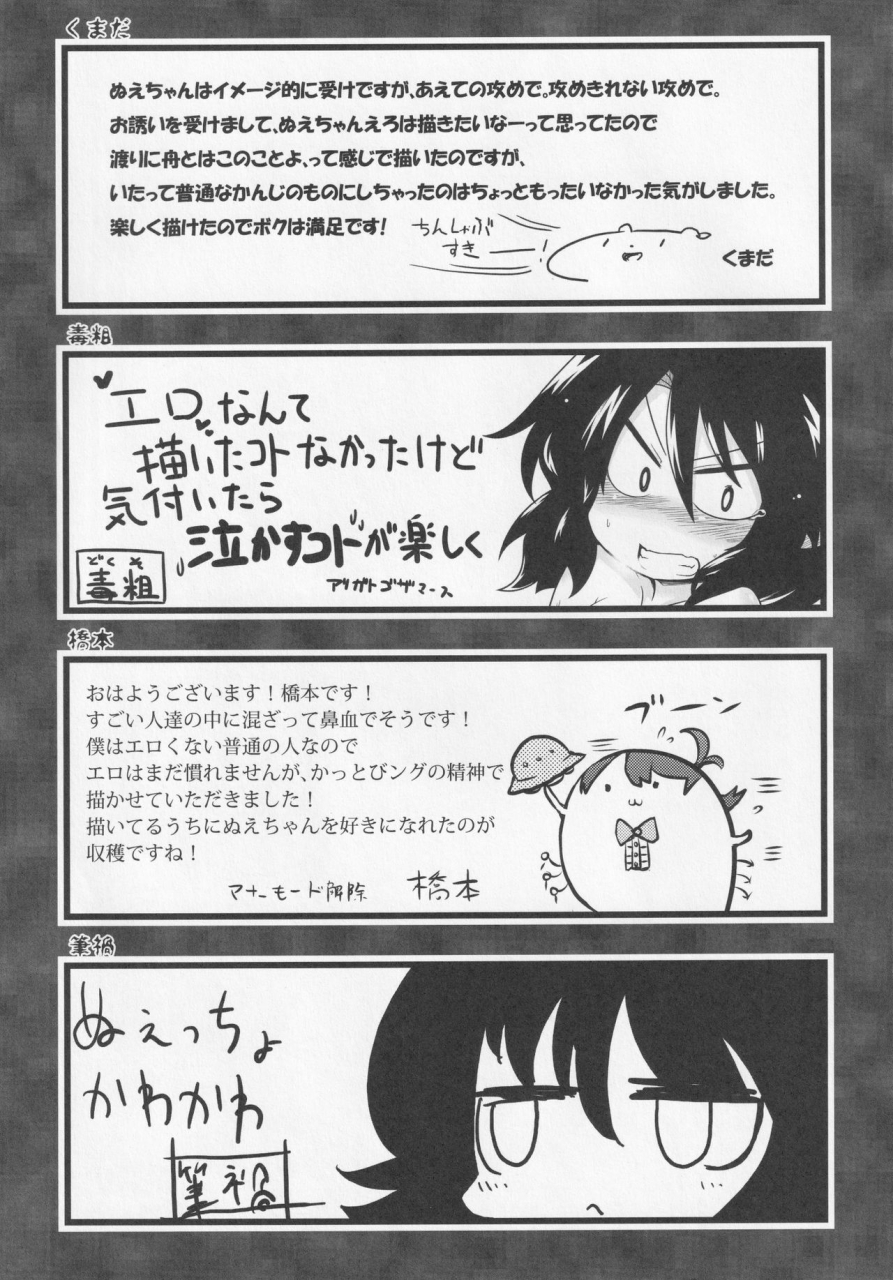 くまだ
ぬえちゃんはイメージ的に受けですが、あえての攻めで。攻めきれない攻めで。
お誘いを受けまして、ぬえちゃんえろは描きたいなーって思ってたので
渡りに舟とはこのことよ、って感じで描いたのですが、
いたって普通なかんじのものにしちゃったのはちょっともったいなかった気がしました。
楽しく描けたのでボクは満足です!
ちんしゃぶ
すき
くまだ
毒粗
エロなんて
描いたコトなかったけど
気付いたら
泣かすコトが楽しく
どくそ
毒粗
アリガトゴザマース
橋本
おはようございます!橋本です!
すごい人達の中に混ざって鼻血でそうです!
僕はエロくない普通の人なので
エロはまだ慣れませんが、かっとびングの精神で
描かせていただきました!
描いてるうちにぬえちゃんを好きになれたのが
収穫ですね!
ブーン
マナーモード解除 橋本
筆禍
ぬえっちょ
かわかわ
筆禍